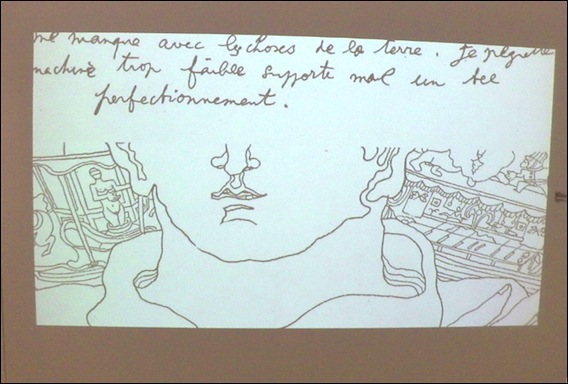 me manque avec les choses de la terre. Je regrette
machine trop faible supporte mal un tel
perfectionnement.